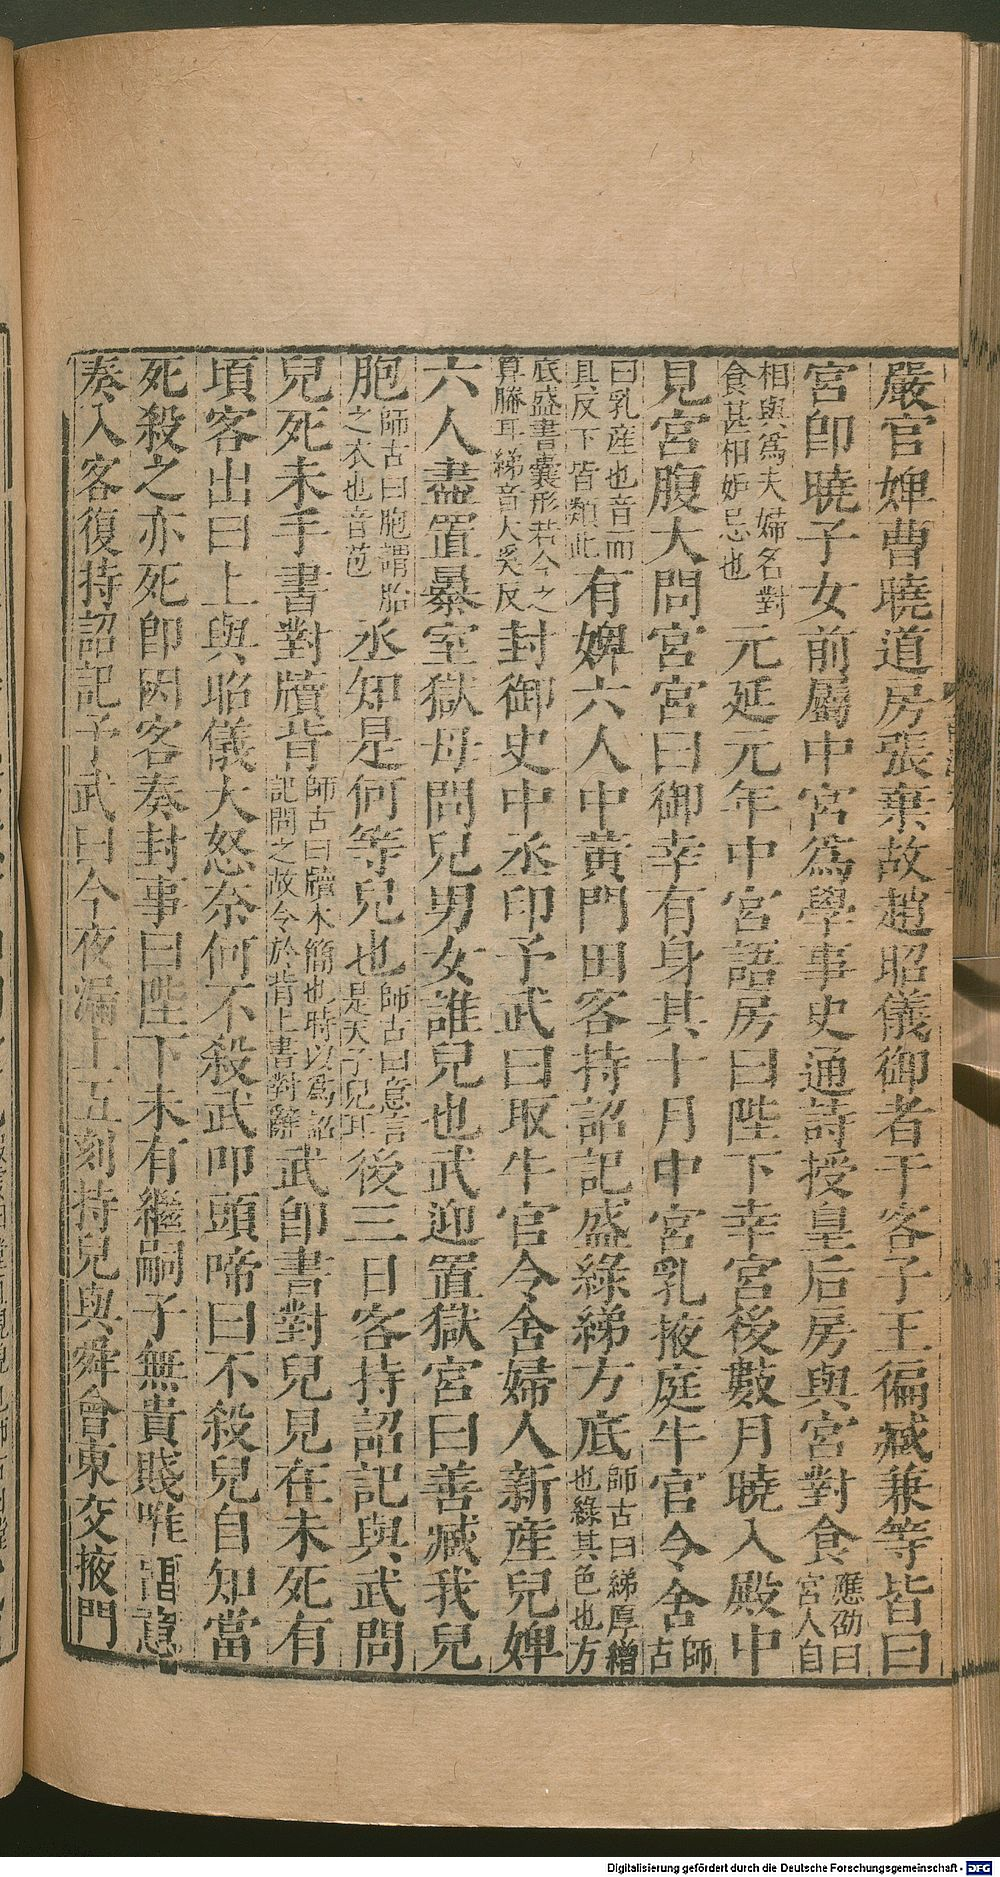 嚴官婢曹曉道房張棄故趙昭儀御者于客子王徧臧兼等皆曰
宮即曉子女前屬中宮爲學事史通詩授皇后房與宮對食應劭曰宮人自
相與爲夫婦名對食甚相妒忌也元延元年中宮語房曰陛下幸宮後數月曉入殿中
見宮腹大問宮宮曰御幸有身其十月中宮乳掖庭牛官令舍師古
曰乳產也音而具反下皆類此有婢六人中黃門田客持詔記盛綠綈方底師古曰綈厚繒也綠其色也方
底盛書囊形若今之算幐耳綈音大奚反封御史中丞印予武曰取牛官令舍婦人新產兒婢
六人盡置暴室獄母問兒男女誰兒也武迎置獄宮曰善臧我兒
胞師古曰胞謂胎之衣也音苞丞知是何等兒也師古曰意言是天子兒耳後三日客持詔記與武問
兒死未手書對牘背師古曰牘木簡也時以爲詔記問之故令於背上書對辭武即書對兒見在未死有
頃客出曰上與昭儀大怒奈何不殺武叩頭啼曰不殺兒自知當
死殺之亦死即因客奏封事曰陛下未有繼嗣子無貴賤唯留意
奏入客復持詔記予武曰今夜漏上五刻持兒與舜會東交掖門
Digitalisierung gefördert durch die Deutsche Forschungsgemeinschaft - DFG